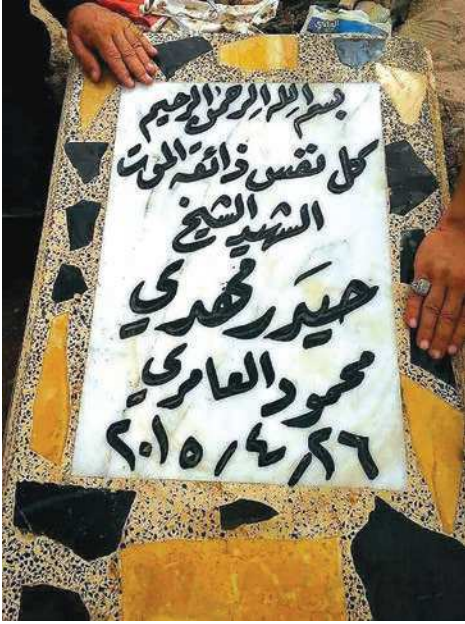 بسم الله الرحمن الرحيم
كل نفس ذائقة الموت
الشهيد الشيخ
حيدر مهدي
محمود العامري
٢٠١٥/٤/٢٦